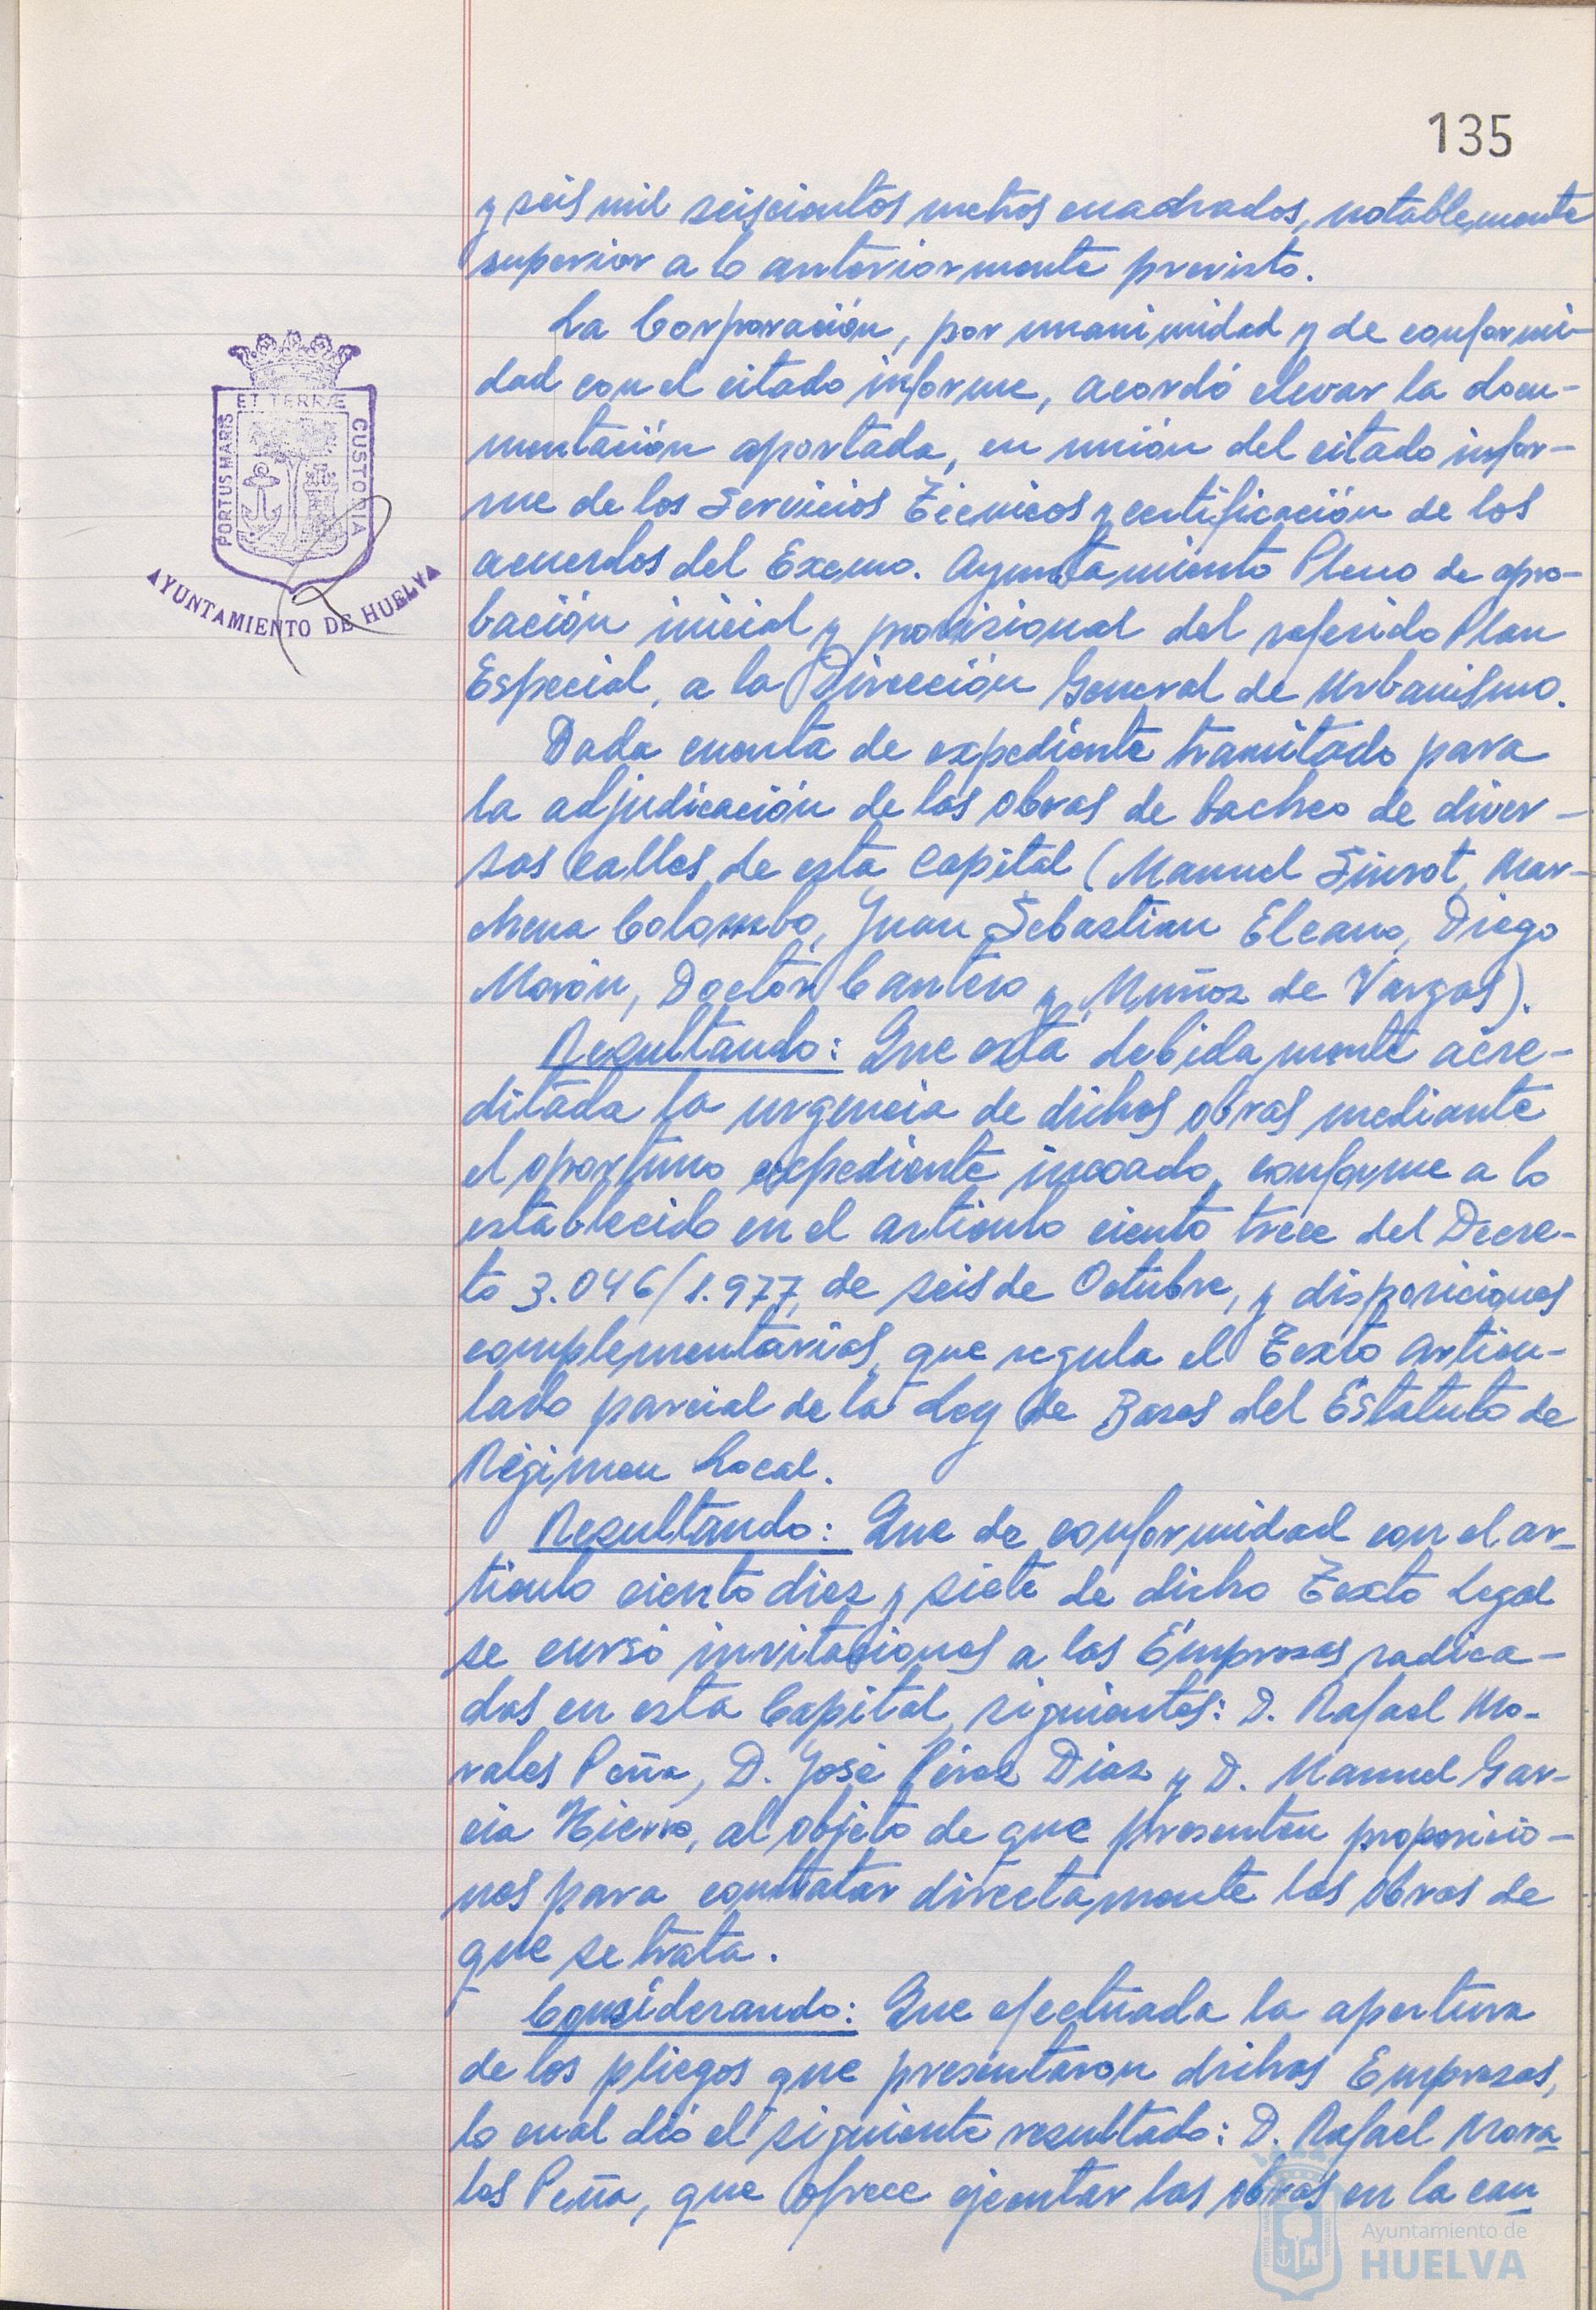 135
y seis mil seiscientos metros cuadrados, notablemente
superior a lo anteriormente previsto.
La Corporación, por unanimidad y de conformi-
dad con el citado informe, acordó elevar la docu-
mentación aportada, en unión del citado infor-
me de los Servicios Técnicos y certificación de los
acuerdos del Excmo. Ayuntamiento Pleno de apro-
bación inicial y provisional del referido Plan
Especial, a la Dirección General de Urbanismo.
Dada cuenta de expediente tramitado para
la adjudicación de las obras de bacheo de diver-
sas calles de esta Capital (Manuel Siurot, Mar-
chena Colombo, Juan Sebastian Elcano, Diego
Morón, Doctor Cantero y Muñoz de Vargas).
Resultando: Que está debidamente acre-
ditada la urgencia de dichas obras mediante
el oportuno expediente incoado, conforme a lo
establecido en el articulo ciento trece del Decre-
to 3.046/1.977, de seis de Octubre, y disposiciones
complementarias, que regula el Texto articu-
lado parcial de la Ley de Bases del Estatuto de
Régimen Local.
Resultando: Que de conformidad con el ar-
ticulo ciento diez y siete de dicho Texto Legal
se cursó invitaciones a las Empresas radica-
das en esta Capital, siguientes: D. Rafael Mo-
rales Peña, D. José Pérez Diaz y D. Manuel Gar-
cia Hierro, al objeto de que presenten proposicio-
nes para contratar directamente las obras de
que se trata.
Considerando: Que efectuada la apertura
de los pliegos que presentaron dichas Empresas,
lo cual dió el siguiente resultado: D. Rafael Mora-
les Peña, que ofrece ejecutar las obras en la can
PORTUS MARIS
ET TERRÆ
CUSTODIA
AYUNTAMIENTO DE HUELVA
Ayuntamiento de
HUELVA